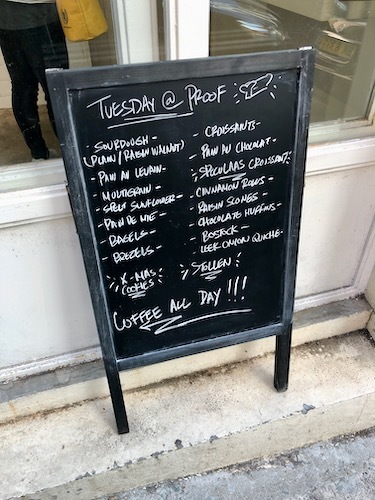 TUESDAY @ PROOF
SOURDOUGH -
(PLAIN / RAISIN WALNUT)
- PAIN AU LEVAIN -
- MULTIGRAIN -
- SPELT SUNFLOWER -
- PAIN DE MIE -
- BAGELS -
- BREZELS -
X-MAS
COOKIES
- CROISSANTS -
- PAIN AU CHOCOLAT -
SPECULAAS CROISSANT
- CINNAMON ROLLS -
- RAISIN SCONES -
- CHOCOLATE MUFFINS -
- BOSTOCK -
LEEK ONION QUICHE -
STOLLEN
COFFEE ALL DAY !!!